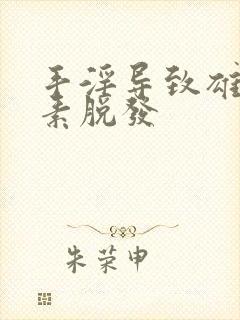 手淫导致雄
素脱發
朱荣申